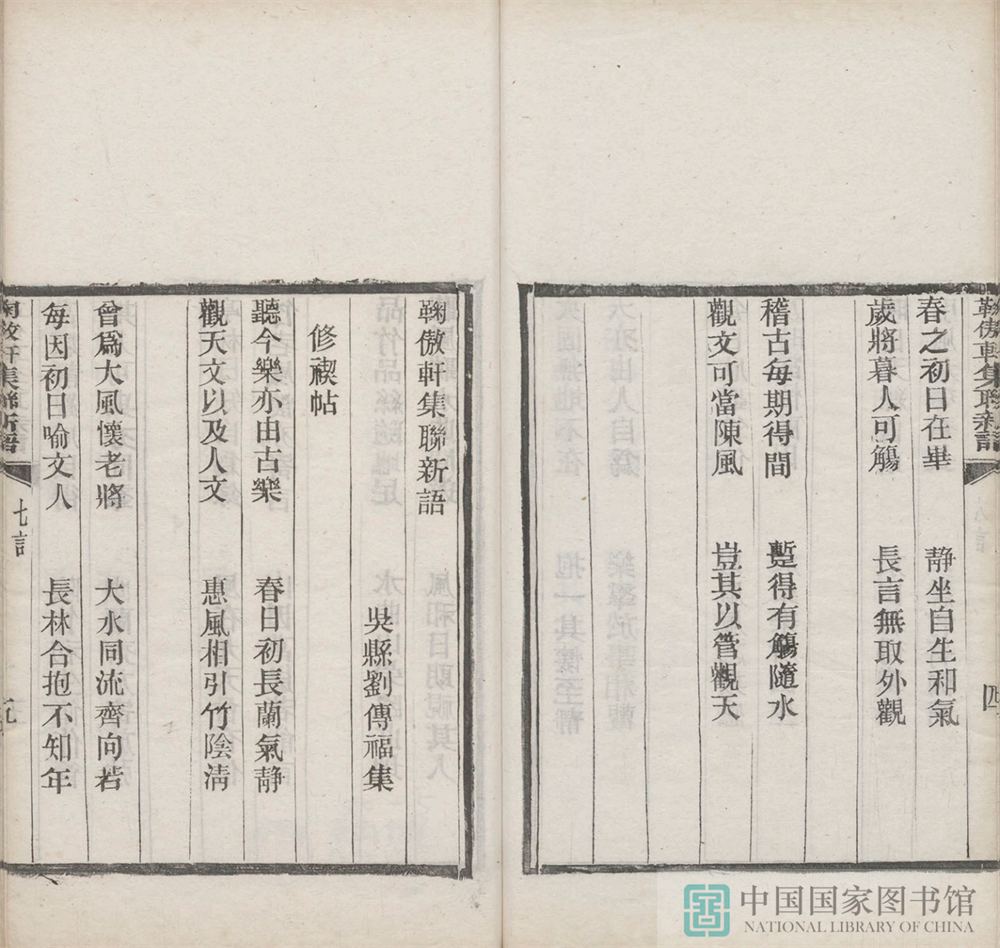 鞠傲軒集聯新語
四
春之初日在畢　靜坐自生和氣
歲將暮人可觴　長言無取外觀
稽古每期得間　蹔得有觴隨水
觀文可當陳風　豈其以管觀天
鞠傲軒集聯新語
吳縣劉傳福集
修禊帖
聽今樂亦由古樂　春日初長蘭氣靜
觀天文以及人文　惠風相引竹陰清
曾爲大風懷老將　大水同流齊向若
每因初日喻文人　長林合抱不知年
鞠傲軒集聯新語
七言
中国国家图书馆
NATIONAL LIBRARY OF CHINA